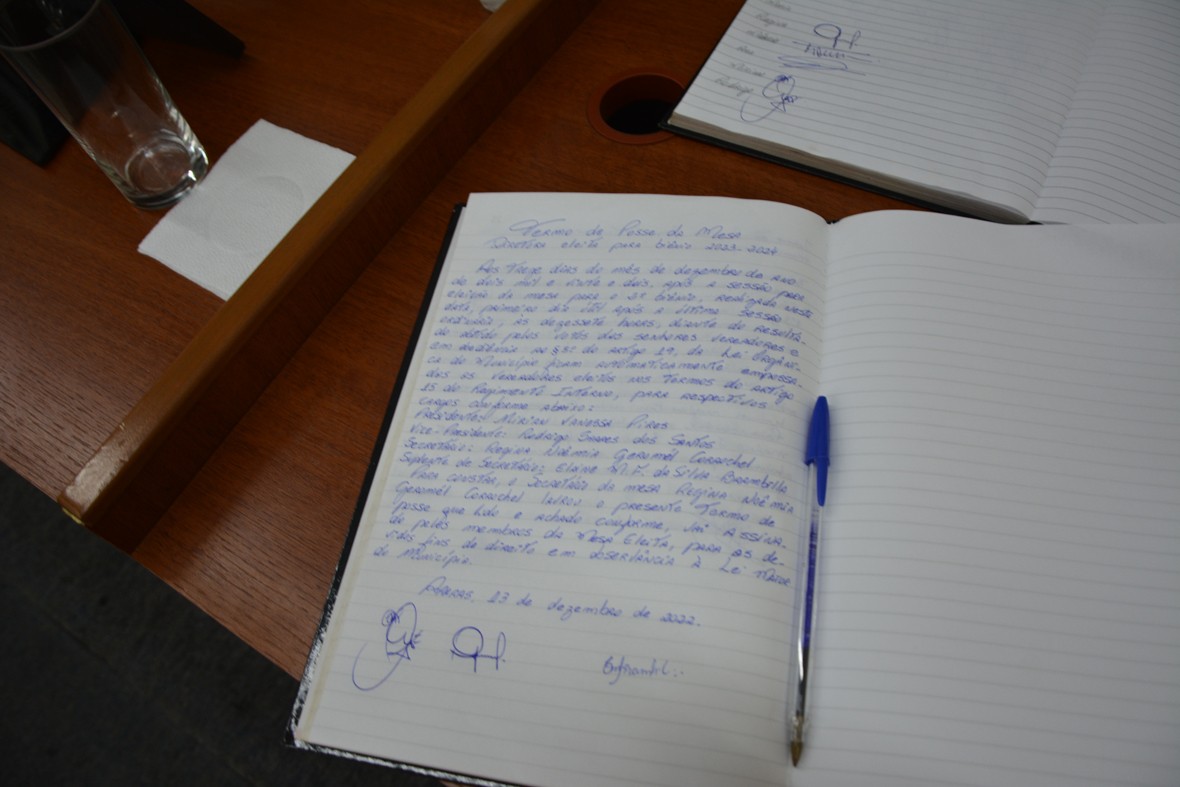 Termo de Posse da Mesa
Diretora eleita para biênio 2023-2024
Aos treze dias do mês de dezembro do ano
de dois mil e vinte e dois, após a sessão para
eleição da mesa para o 2º biênio, realizada nesta
data, primeiro dia útil após a última sessão
ordinária, às dezessete horas, diante do resulta-
do obtido pelos votos dos senhores vereadores e
em obediência ao § 3º do artigo 19, da Lei Orgâni-
ca do Município ficam automaticamente empossa-
dos os vereadores eleitos nos termos do artigo
15 do Regimento Interno, para respectivos
cargos conforme abaixo:
Presidente: Mirian Vanessa Pires
Vice-Presidente: Rodrigo Soares dos Santos
Secretário: Regina Noêmia Geromel Corrochel
Suplente de Secretário: Elaine M.F. da Silva Brambella
Para constar, o Secretário da mesa Regina Noêmia
Geromel Corrochel lavrou o presente Termo de
posse que lido e achado conforme, vai assina-
do pelos membros da Mesa Eleita, para os de-
vidos fins de direito em observância à Lei maior
do Município.
13 de dezembro de 2022.